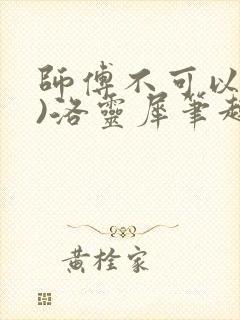 師傅不可以
)洛靈犀筆趣
黃栓家